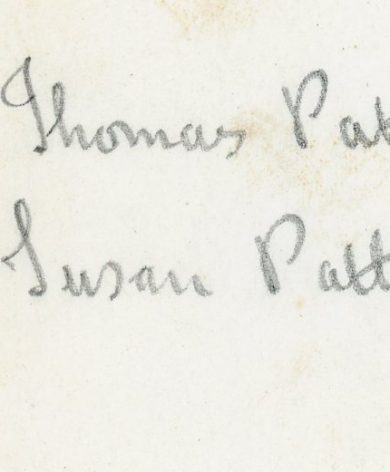 Thomas Pat
Susan Patt